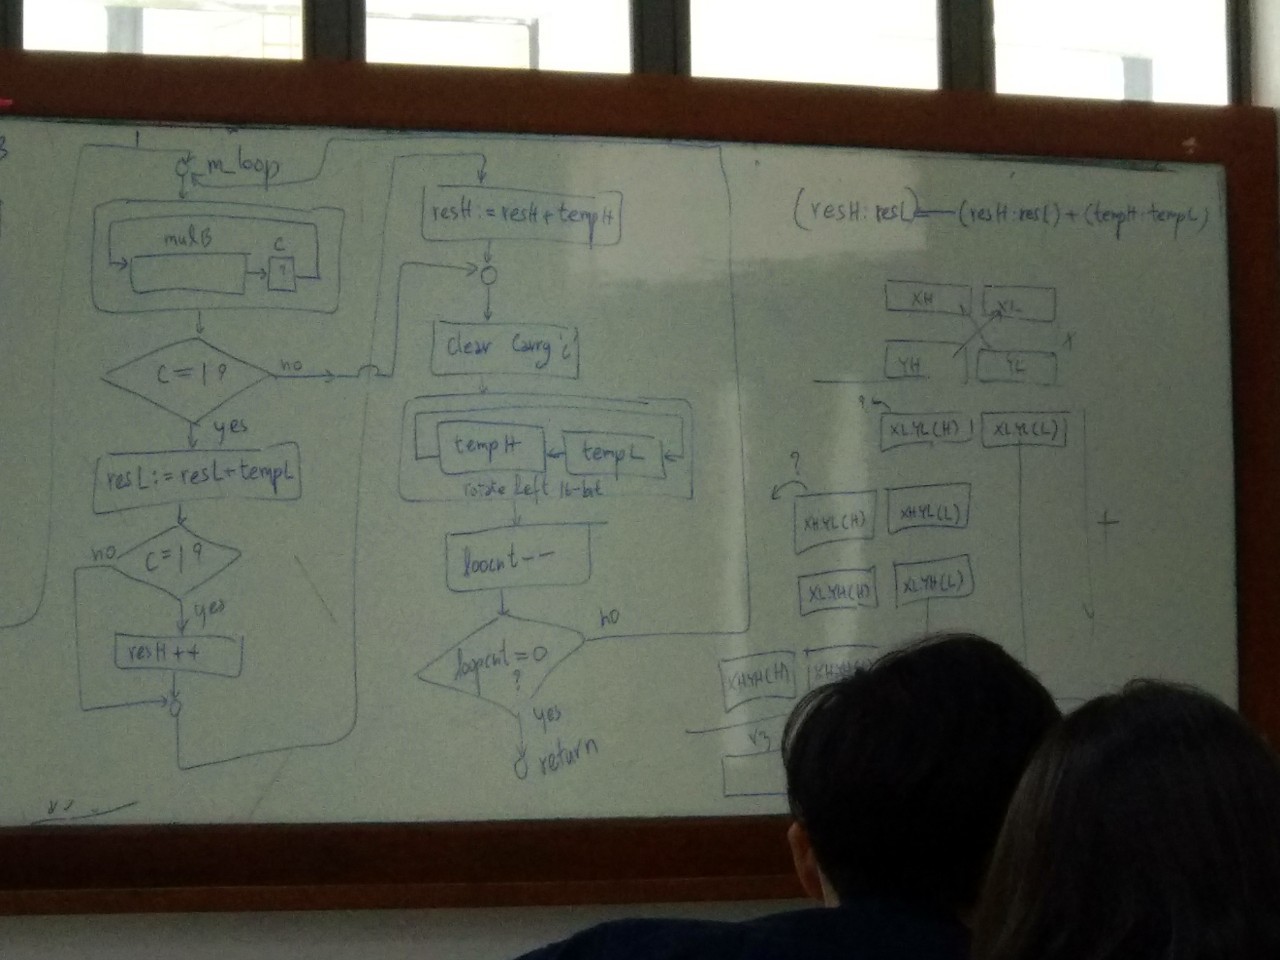 m_loop
mulB
C
?
C=1?
no
yes
resL:=resL+tempL
C=1?
no
yes
resH++
resH:=resH+tempH
clear Carry 'c'
tempH
tempL
rotate left 16-bit
loopcnt--
loopcnt=0
?
no
yes
return
(resH:resL)←(resH:resL)+(tempH:tempL)
XH
XL
YH
YL
X
?
XLYL(H)
XLYL(L)
?
XHYL(H)
XHYL(L)
+
XLYH(H)
XLYH(L)
XHYH(H)